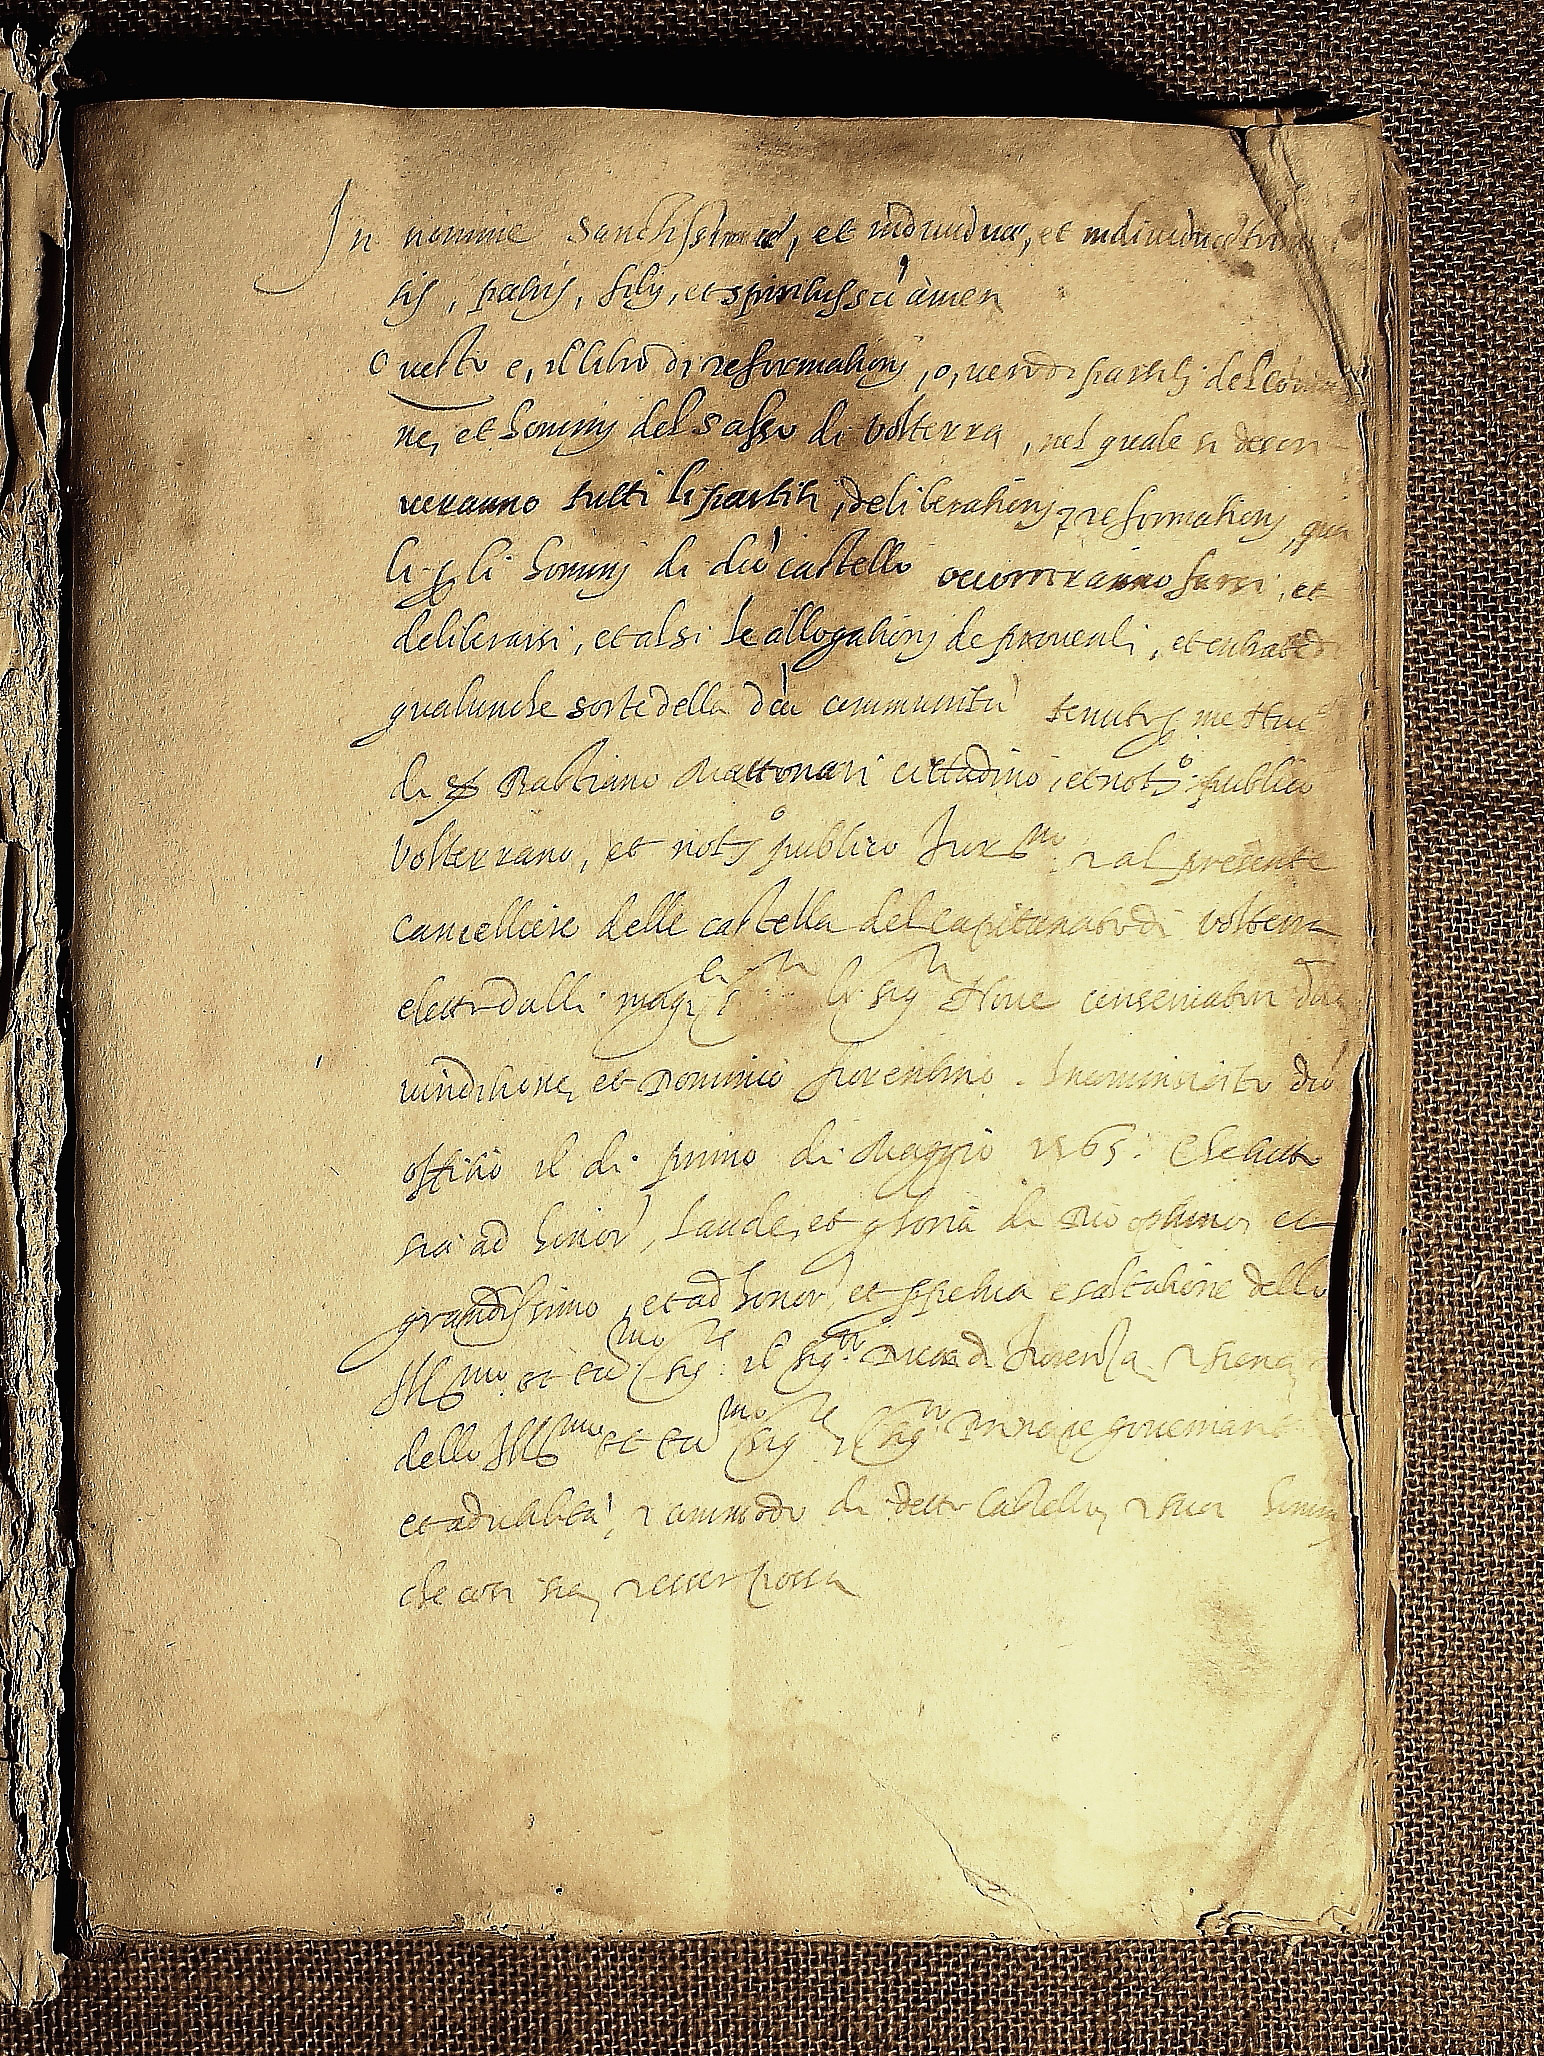 In nomine Sanctissimae, et individuae, et individuae trini
tis, patris, filij, et spiritus sci amen
Questo e, il libro di reformationj, o, vero di partitj del comu
ne, et hominj del Sasso di Volterra, nel quale si descri-
veranno tutti li partiti, deliberationj, reformationj, qua
li gli hominj di dco castello occorreranno farsi, et
deliberarsi, et alsi le allogationj de proventi, et entrate di
qualunche sorte della dca communita tenuto me
di Bastiano cittadino, et noto publico
Volterrano, et noto publico al presente
cancelliere delle castella del capitanato di Volterra
eletto dalli mag li sig Nove conservatori della
iurisditione, et Dominio fiorentino. Incominciato dco
offitio il di primo di Maggio 1565: Che tutto
sia ad honor, laude, et gloria di Dio optimo, et
grandissimo, et ad honor, et esaltatione dello
Illmo et ecc sig il sig Duca di Fiorenza, Siena
dello Illmo et ecc sig sig Principe governante
et ad utilita, commodo di detto Castello, suoi homini
che cosi sia, possa